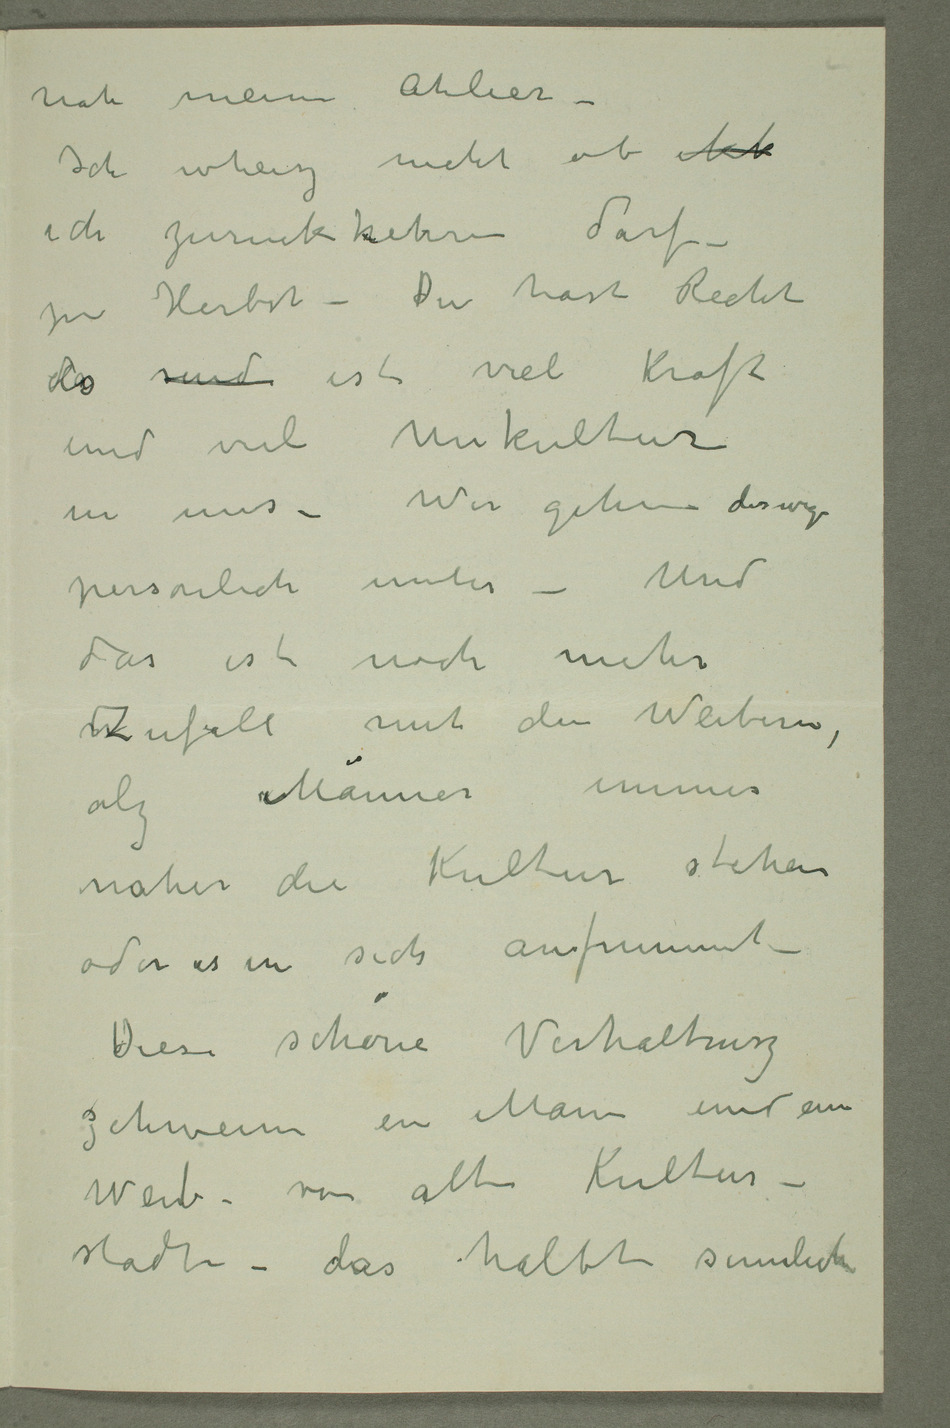 nah meinem Athelier –
Ich wheisz nicht ob
ich zuruckkehren darf –
zu Herbst – Du hast Recht
das sind ist viel Kraft
und viel Unkultur
in uns – Wir gehen deswegen
personlich unter – Und
das ist noch mehr
Zufall mit den Weibern,
alz Männer immer
naher die Kultur stehen
oder es in sich aufnimmt –
Diese schöne Verhaltnisz
zchweien en Mann und ein
Weib – von alte Kultur –
stadt – das halbt sinnlich